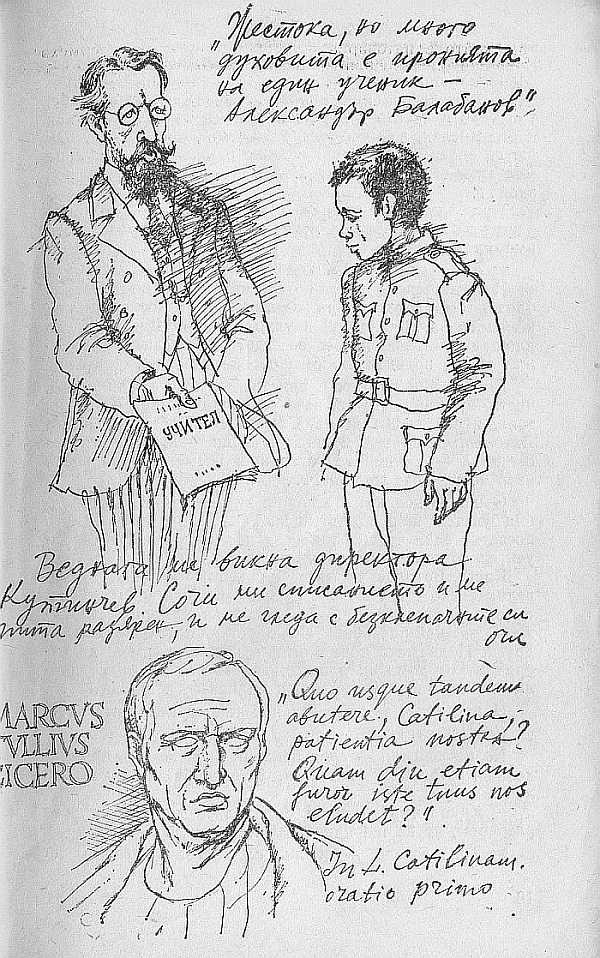 „Жестока, но много
духовита е иронията
на един ученик –
Александър Балабанов".
УЧИТЕЛ
Веднага ме викна директора
Купинчев. Сочи ми списанието и ме
пита разярен, и ме гледа с безклепачните си
очи
MARCVS
VLLIVS
CICERO
„Quo usque tandem
abutere, Catilina,
patientia nostra?
Quam diu etiam
furor iste tuus nos
eludet?".
In L. Catilinam.
oratio primo